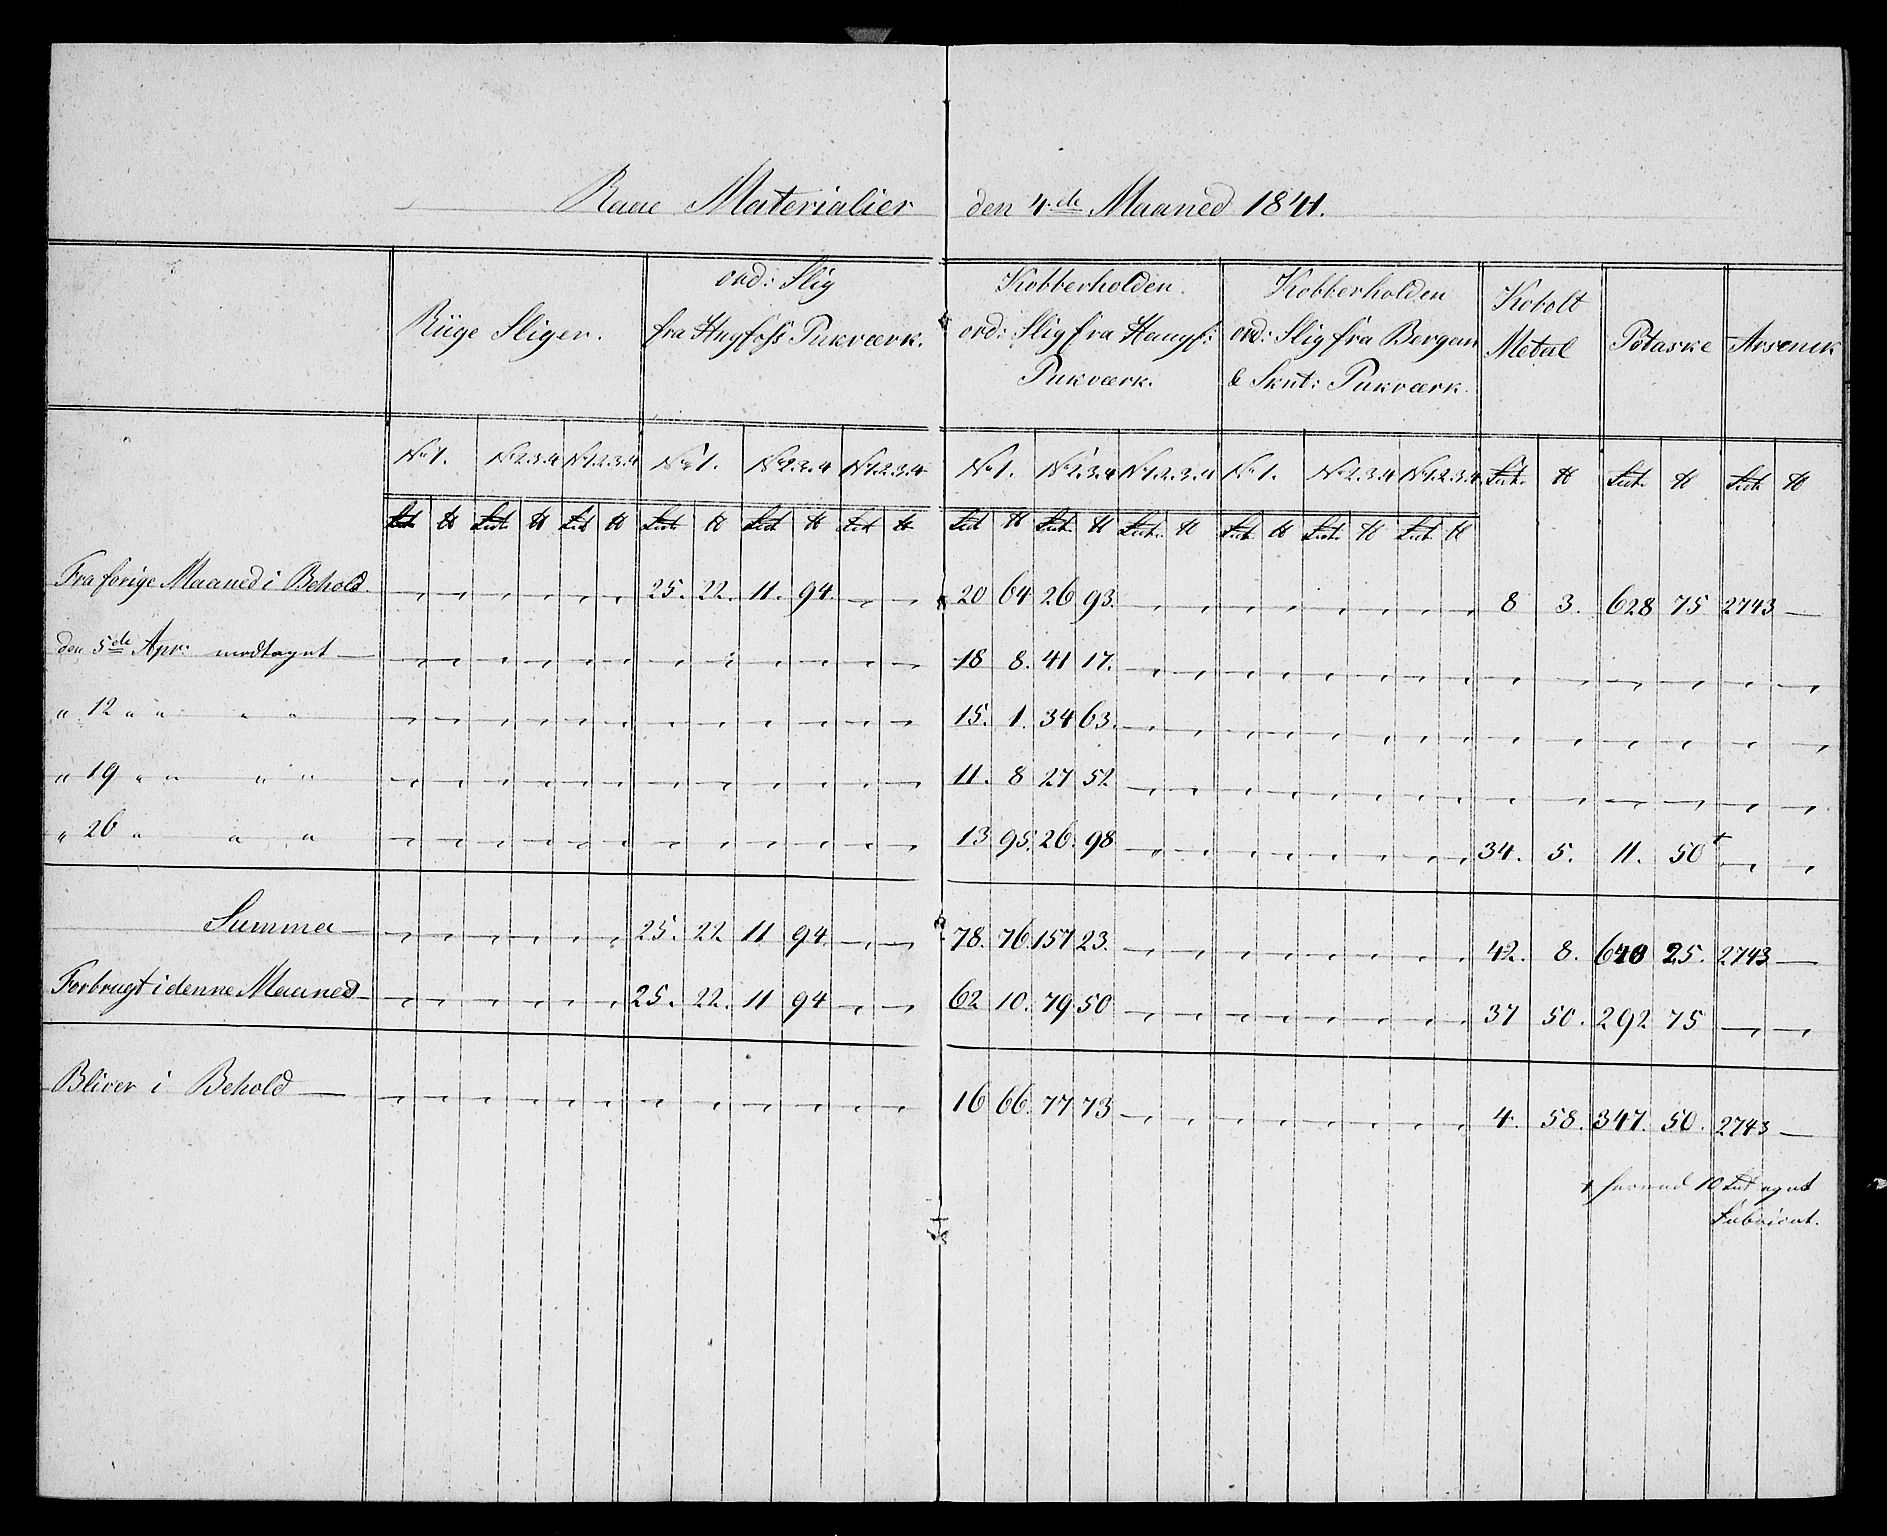 Raae Materialier den 4de Maaned 1841.
Riige Sliger.
ord: Slig
fra Haugfoss Pukværk.
Kobberholden
ord: Slig fra Haugf:
Pukværk.
Kobberholden
ord: Slig fra Bergan
& Skut: Pukværk.
Kobolt
Metal
Potaske
Arsenik
No 1. No 2.3.4 No 1.2.3.4 No 1. No 2.3.4 No 1.2.3.4 No 1. No 2.3.4 No 1.2.3.4 No 1. No 2.3.4 No 1.2.3.4
Fra forige Maaned i Behold. 25. 22. 11. 94. 20 64 26 93. 8 3. 628 75 2743 —
den 5de Apr: modtaget — 18 8. 41 17.
" 12 " " " " 15. 1. 34 63.
" 19 " " " " 11. 8 27 52
" 26 " " " 13 95. 26. 98 34. 5. 11. 50+
Summa — 25. 22 11 94 78. 76. 157 23. 42. 8. 640 25. 2743 —
Forbrugt i denne Maaned — 25. 22. 11 94 62 10. 79. 50 37 50. 292 75
Bliver i Behold — 16 66. 77 73 4. 58. 347. 50. 2743 —
+ 10
Fabricat.